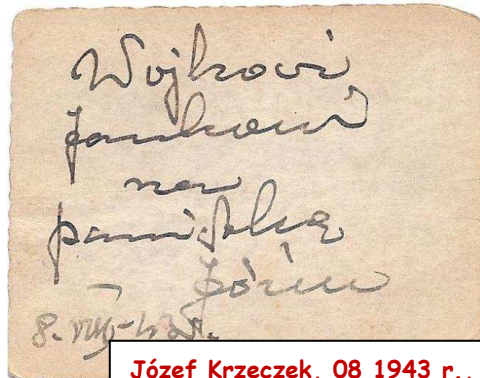 Wujkowi
Jankowi
na
pamiątkę
Józiu
8. VIII-43r.
Józef Krzeczek, 08 1943 r.,